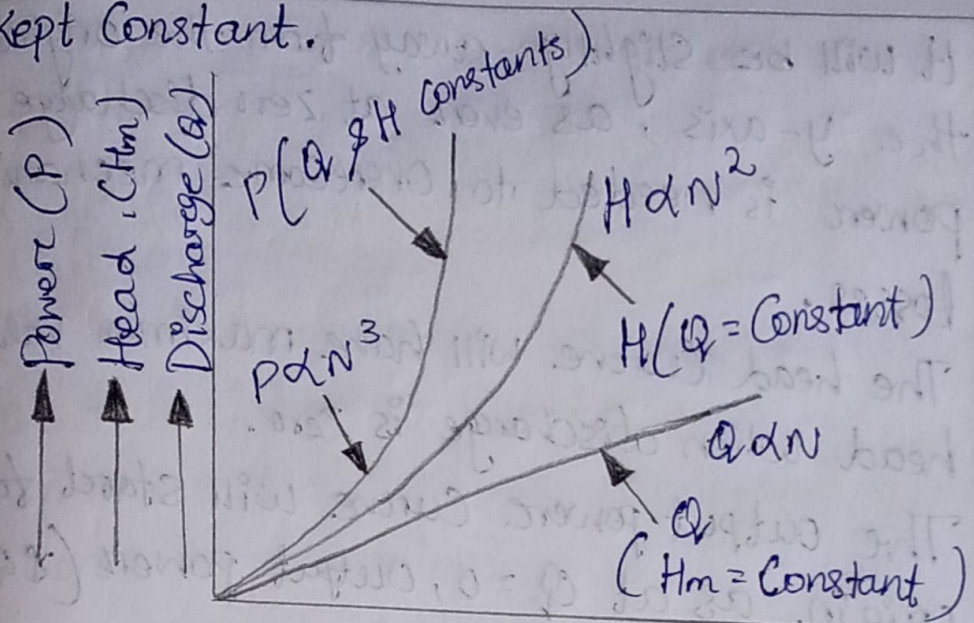 Kept Constant.
Power (P)
Head (Hm)
Discharge (Q)
P(Q & H Constants)
H∝N²
P∝N³
H(Q = Constant)
Q∝N
Q
(Hm = Constant)